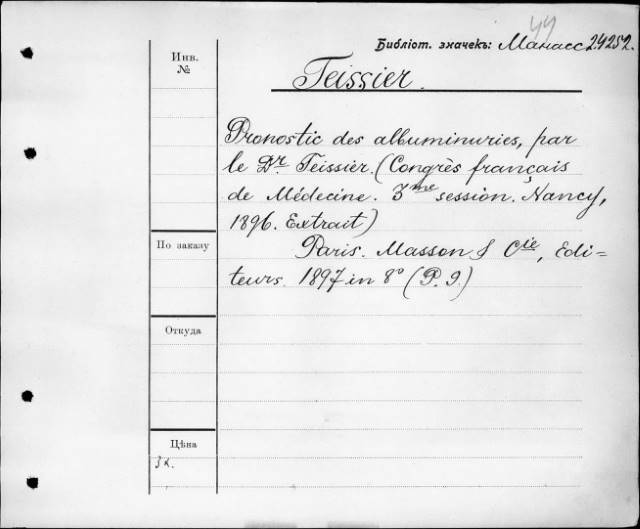 44
Библіот. значекъ: Манасс 24252.
Инв.
№
Teissier.
Pronostic des albuminuries, par
le Dr. Teissier. (Congrès français
de Médecine. 3me session. Nancy,
1896. Extrait)
По заказу
Paris. Masson & Cie, Edi=
teurs. 1897 in 8° (P. 9.)
Откуда
Цѣна
3к.